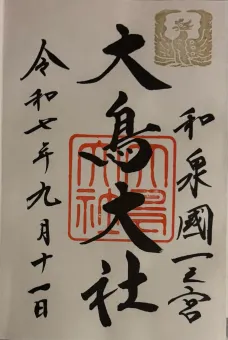 和泉國一之宮
大鳥大社
令和七年九月十一日
大鳥大社